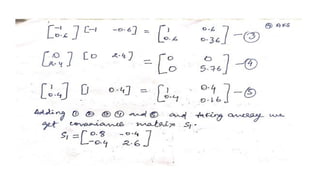 ④ Ans
[-1 0.6] [-1 -0.6] = [1 0.6 0.6 0.36] —③
[0 2.4] [0 2.4] = [0 0 0 5.76] —④
[1 0.4] [1 0.4] = [1 0.4 0.4 0.16] —⑤
Adding ① ② ③ ④ and ⑤ and taking average we
get covariance matrix S₁.
S₁ = [0.8 -0.4 -0.4 2.6]